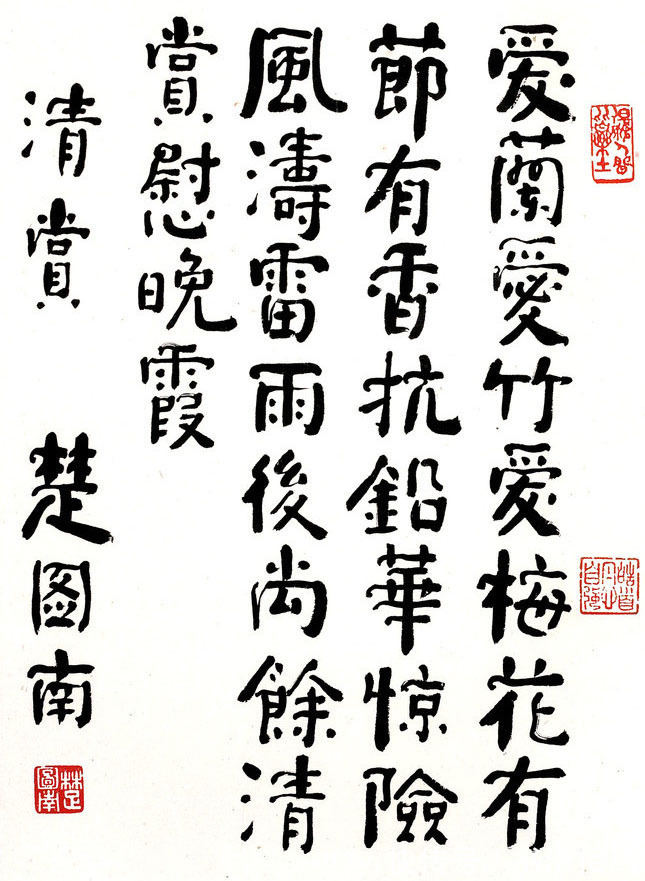 愛蘭愛竹愛梅花有
節有香抗鉛華惊險
風濤雷雨後尚餘清
賞慰晚霞
清賞 楚图南
楚圖南